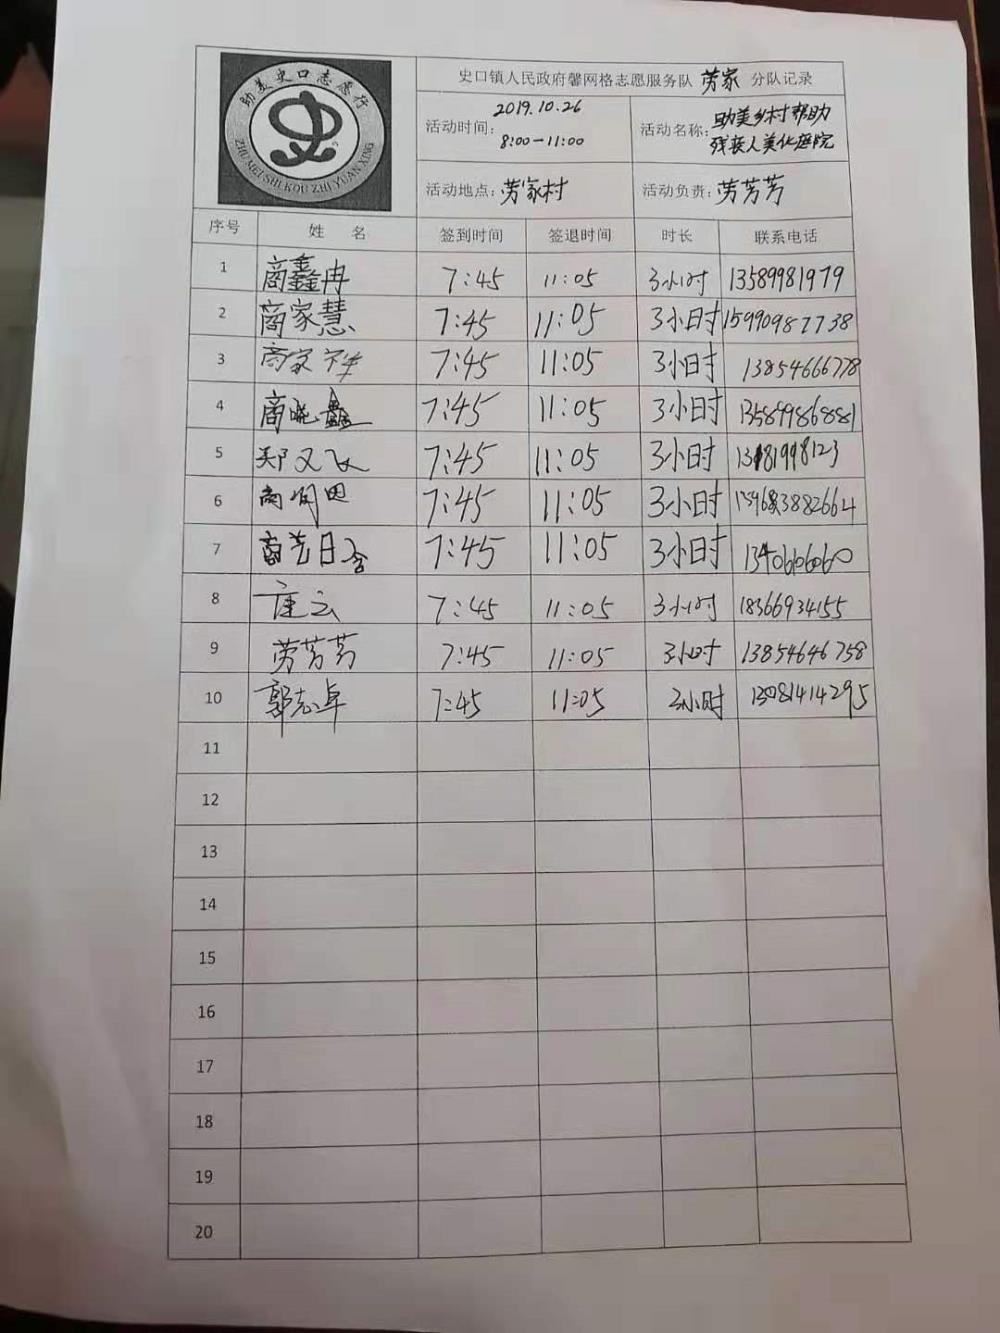 助美史口志愿行
ZHU MEI SHI KOU ZHI YUAN XING
史口镇人民政府馨网格志愿服务队 劳家 分队记录
活动时间: 2019.10.26 8:00—11:00
活动名称: 助美乡村帮助残疾人美化庭院
活动地点: 劳家村
活动负责: 劳芳芳
序号 姓 名 签到时间 签退时间 时长 联系电话
1 商鑫冉 7:45 11:05 3小时 13589981979
2 商家慧 7:45 11:05 3小时 15990987738
3 商家祥 7:45 11:05 3小时 13854666778
4 商晓鑫 7:45 11:05 3小时 13589986881
5 郑文飞 7:45 11:05 3小时
6 7:45 11:05 3小时
7 7:45 11:05 3小时
8 7:45 11:05 3小时 18366934155
9 劳芳芳 7:45 11:05 3小时 13854646758
10 郭志卓 7:45 11:05 3小时
11
12
13
14
15
16
17
18
19
20